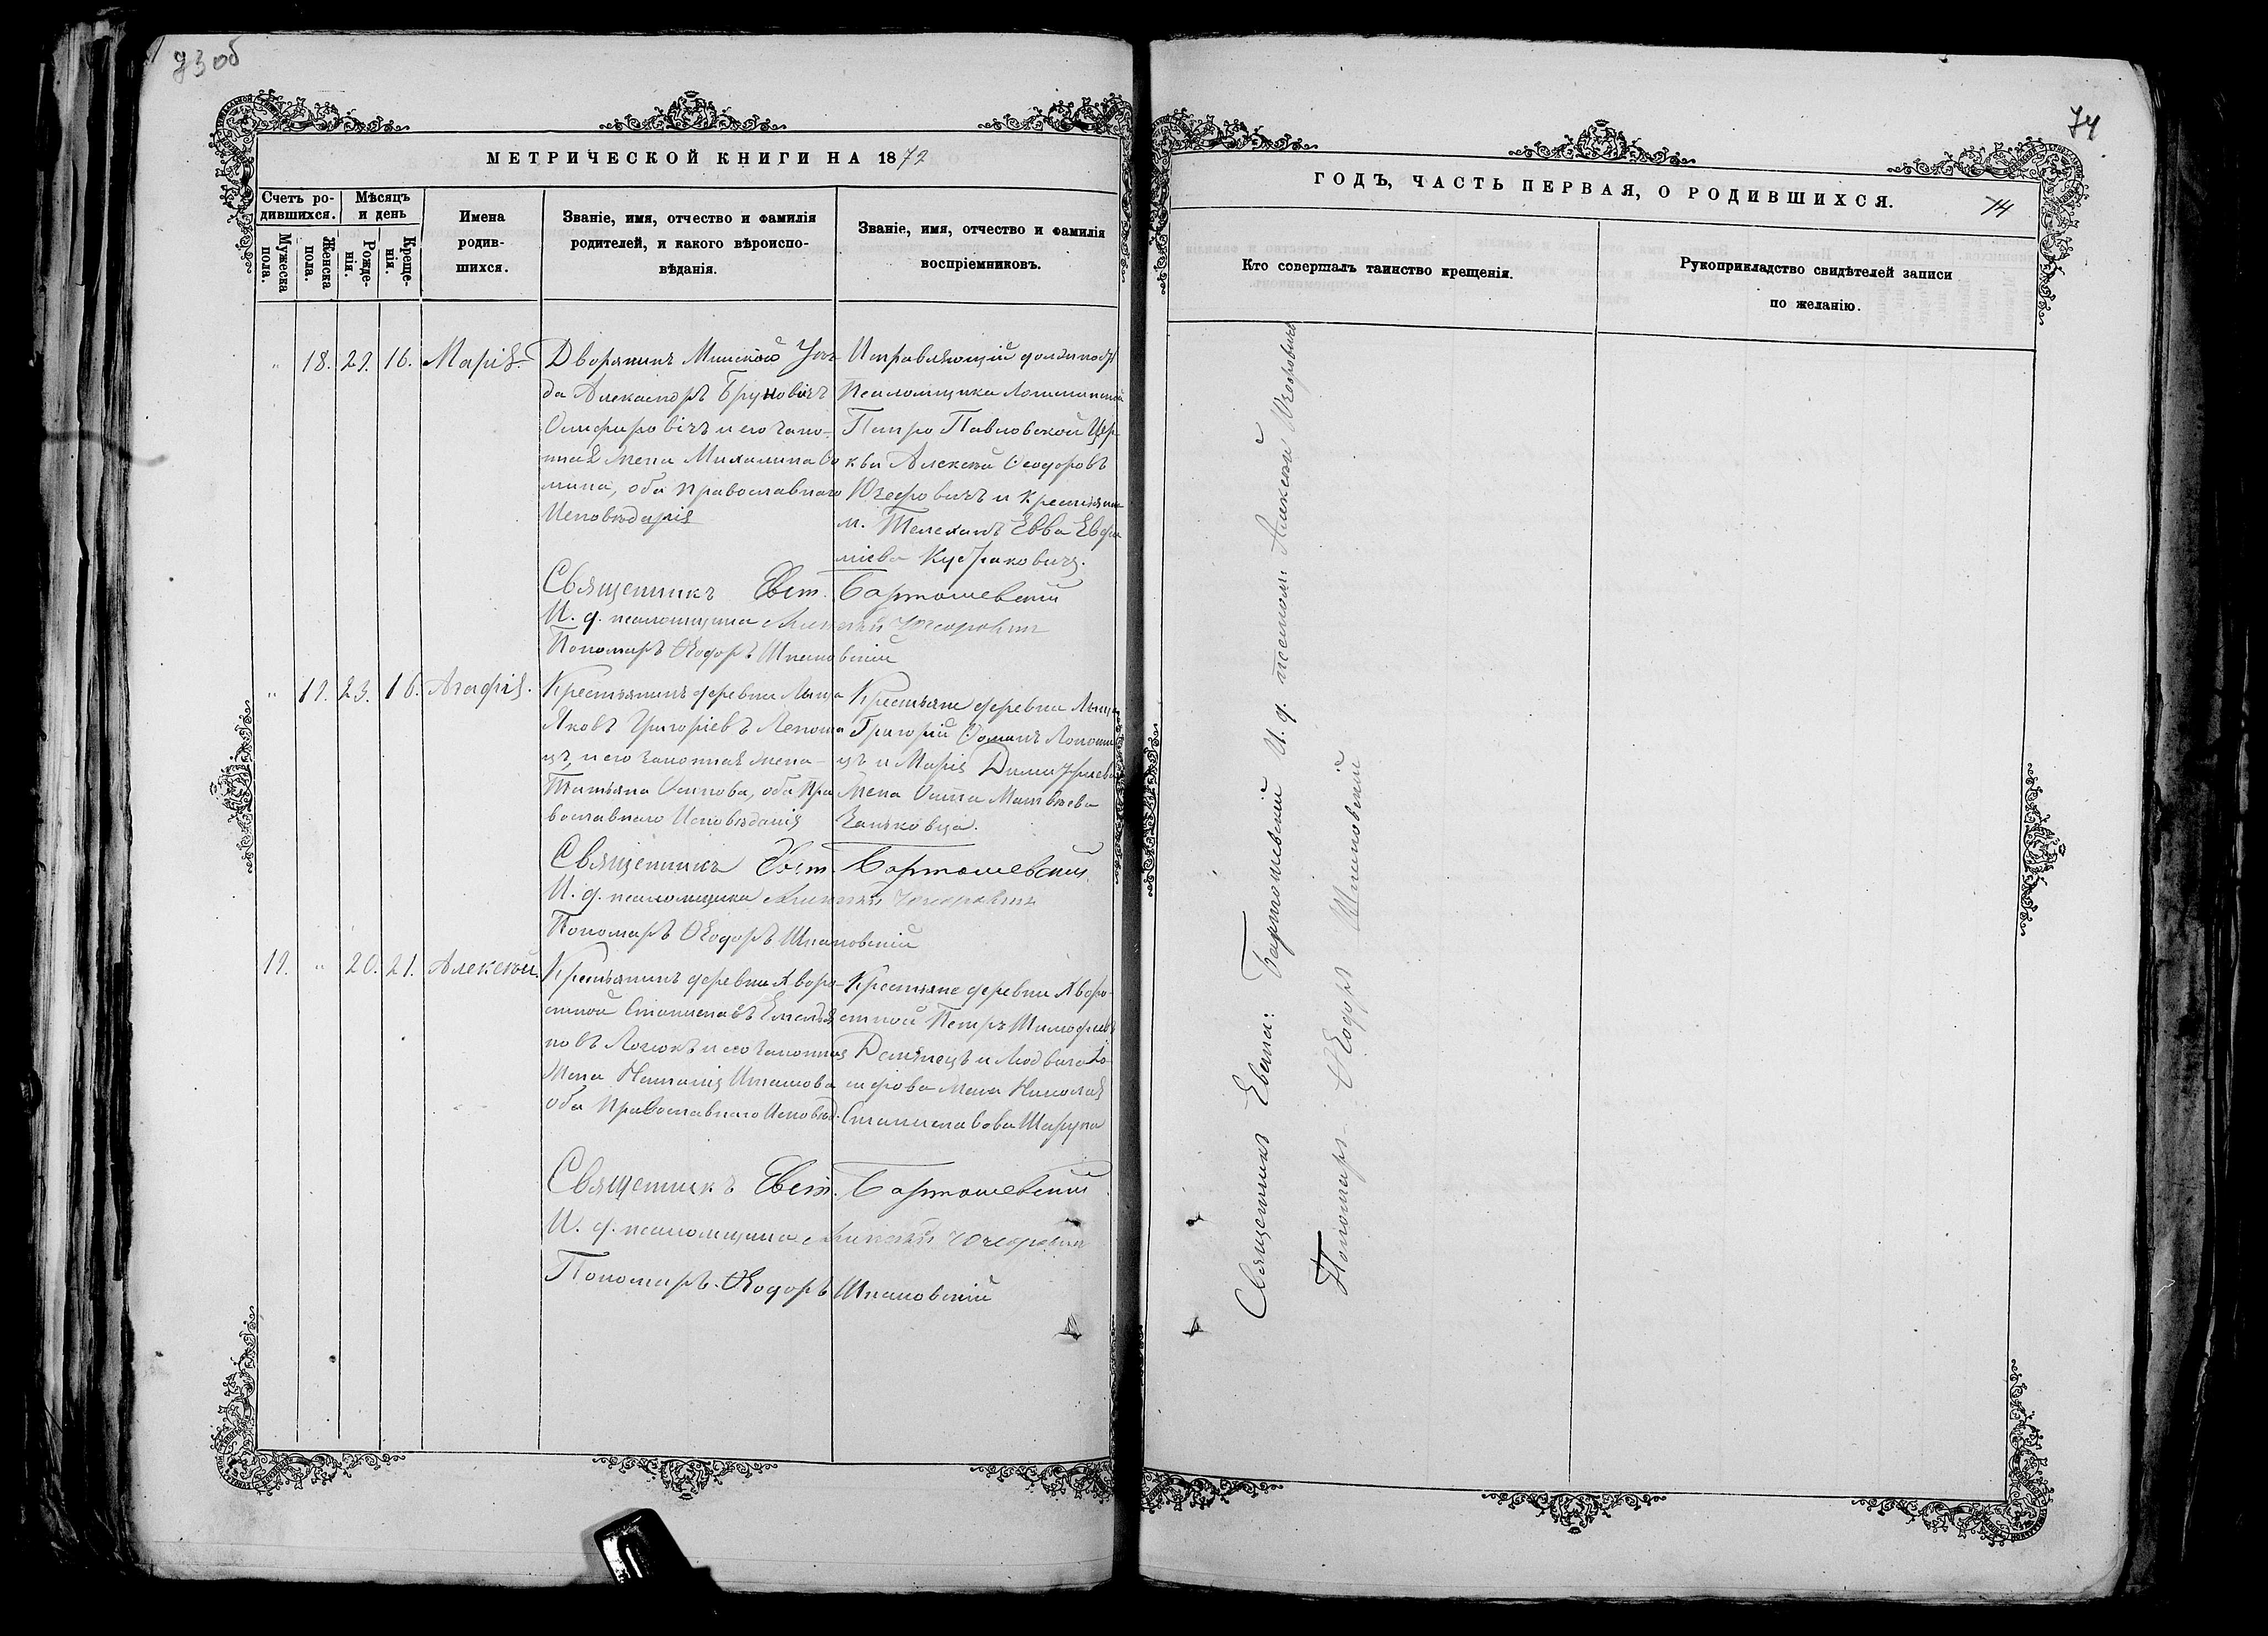 73 об
МЕТРИЧЕСКОЙ КНИГИ НА 1872
Счетъ ро-
дившихся.
Мѣсяцъ
и день
Мужеска
пола.
Женска
пола.
Рожде-
нія.
Креще-
нія.
Имена
родив-
шихся.
Званіе, имя, отчество и фамилія
родителей, и какого вѣроиспо-
вѣданія.
Званіе, имя, отчество и фамилія
воспріемниковъ.
„ 18. 29. 16. Марія.
Дворянинъ Минскаго Уѣз
да
и его закон-
ная жена Михалина
оба православнаго
Исповѣданія
Исправляющій должность
Псаломщика
Петро Павловской Цер
кви Алексѣй Ѳеодоровъ
Юзефовичъ и крестьянка
м. Телеханъ Евва Евфи
міева
Священникъ Евст. Бартошевскій
И. д. псаломщика Алексѣй Юзефовичъ
Пономарь Ѳеодоръ Шпановскій
„ 19. 23. 16. Агафія.
Крестьянинъ деревни
Яковъ Григоріевъ
и его законная жена
Татьяна Осипова, оба пра
вославнаго Исповѣданія
Крестьяне деревни
Григорій
и Марія Димитріева
жена Матвѣева
Священникъ Евст. Бартошевскій
И. д. псаломщика Алексѣй Юзефовичъ
Пономарь Ѳеодоръ Шпановскій
19. „ 20. 21. Алексѣй.
Крестьянинъ деревни Хворо-
стной Станиславъ Емелья
новъ и его законная
жена Наталія Игнатова
оба православнаго Исповѣд.
Крестьяне деревни Хворо-
стной Петръ Тимофеевъ
и Людвига Іо-
сифова жена Николая
Станиславова
Священникъ Евст. Бартошевскій
И. д. псаломщика Алексѣй Юзефовичъ
Пономарь Ѳеодоръ Шпановскій
74
ГОДЪ, ЧАСТЬ ПЕРВАЯ, О РОДИВШИХСЯ.
74
Кто совершалъ таинство крещенія.
Рукоприкладство свидѣтелей записи
по желанію.
Священникъ Бартошевскій И. д. псалом. Алексѣй Юзефовичъ
Пономарь Ѳеодоръ Шпановскій